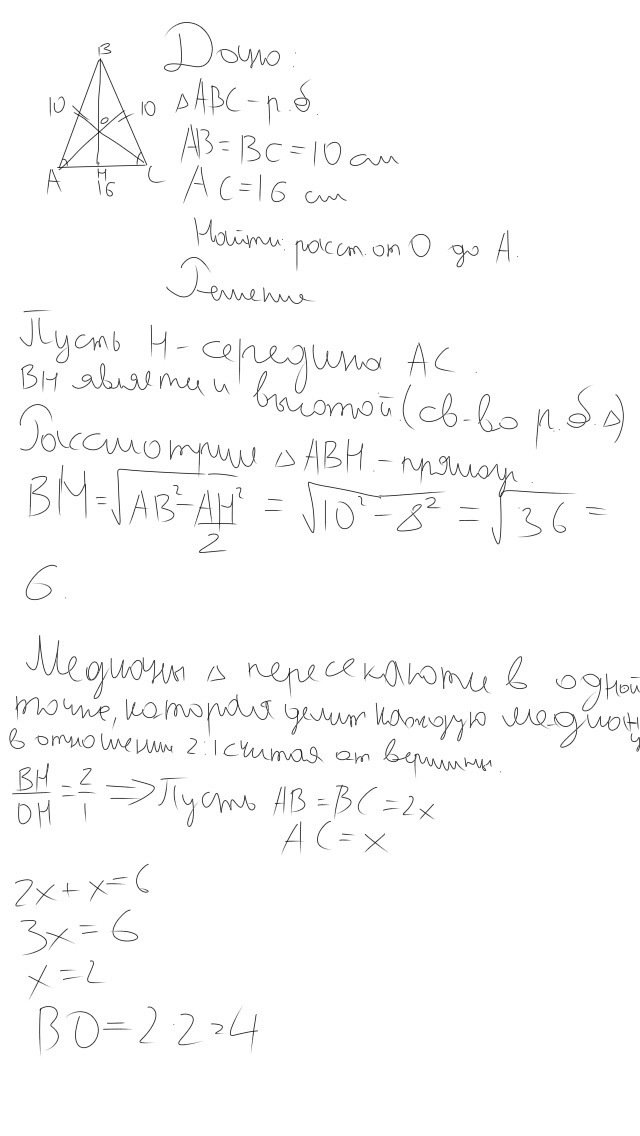 B
Дано:
10
10
△ABC - р.б.
O
AB=BC=10 см
A
H
C
16
AC=16 см
Найти: расст. от O до A.
Решение
Пусть H - середина AC.
BH является высотой. (св-во р.б.△)
Рассмотрим △ABH - прямоуг.
BH=√AB²-AH²/2 = √10²-8² = √36 =
6.
Медианы △ пересекаются в одной
точке, которая делит каждую медиану
в отношении 2:1 считая от вершины.
BH/OH=2/1 => Пусть AB=BC=2x
AC=x
2x+x=6
3x=6
x=2
BO=2·2=4